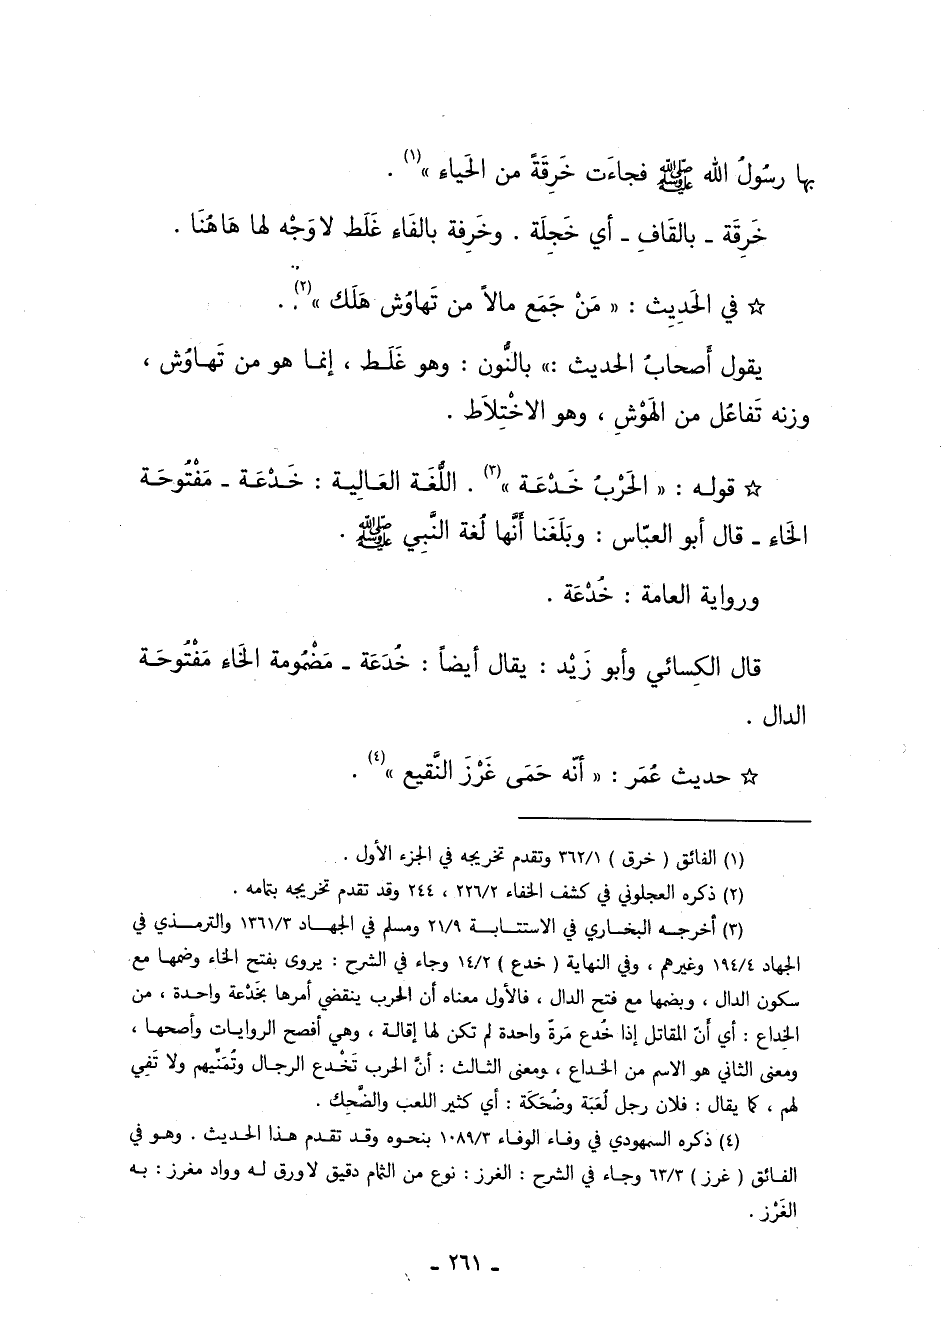 بها رسُولُ الله ﷺ فجاءَت خَرِقَةً من الحَياء »(١) .
خَرِقَة ـ بالقَافِ ـ أي خَجِلَة . وخَرِفة بالفَاء غَلَط لاوَجْه لها هَاهُنَا .
☆ في الحَدِيث : « مَنْ جَمَع مالاً من تَهاوُش هَلَك »(٢) .
يقول أَصحابُ الحديث :» بالنُّون : وهو غَلَط ، إنما هو من تَهاوُش ،
وزنه تَفاعُل من الهَوْشِ ، وهو الاخْتِلاَط .
☆ قوله : « الحَرْبُ خَدْعَة »(٣) . اللُّغَة العَالِية : خَدْعَة ـ مَفْتُوحَة
الخَاء ـ قال أبو العبّاس : وبَلَغَنا أَنَّها لُغة النَّبي ﷺ .
ورواية العامة : خُدْعَة .
قال الكِسائي وأبو زَيْد : يقال أيضاً : خُدَعَة ـ مَضْمُومة الخَاء مَفْتُوحَة
الدال .
☆ حديث عُمَر : « أَنّه حَمَى غَرْزَ النَّقيع »(٤) .
(١) الفائق ( خرق ) ٣٦٢/١ وتقدم تخريجه في الجزء الأول .
(٢) ذكره العجلوني في كشف الخفاء ٢٢٦/٢ ، ٢٤٤ وقد تقدم تخريجه بتمامه .
(٣) أخرجه البخاري في الاستتابة ٢١/٩ ومسلم في الجهاد ١٣٦١/٣ والترمذي في
الجهاد ١٩٤/٤ وغيرهم ، وفي النهاية ( خدع ) ١٤/٢ وجاء في الشرح : يروى بفتح الخاء وضمها مع
سكون الدال ، وبضمها مع فتح الدال ، فالأول معناه أن الحرب ينقضي أمرها بخَدْعة واحدة ، من
الخِداع : أي أَنّ المقاتل إذا خُدع مَرةً واحدة لم تكن لها إقالة ، وهي أفصح الروايات وأصحها ،
ومعنى الثاني هو الاسم من الخداع ، ومعنى الثالث : أنَّ الحرب تَخْدع الرجال وتُمَنِّيهم ولا تَفِي
لهم ، كما يقال : فلان رجل لُعَبَة وضُحَكَة : أي كثير اللعب والضَّحِك .
(٤) ذكره السمهودي في وفاء الوفاء ١٠٨٩/٣ بنحوه وقد تقدم هذا الحديث . وهو في
الفائق ( غرز ) ٦٣/٣ وجاء في الشرح : الغرز : نوع من الثمام دقيق لاورق له وواد مغرز : به
الغَرْز .
ـ ٢٦١ ـ